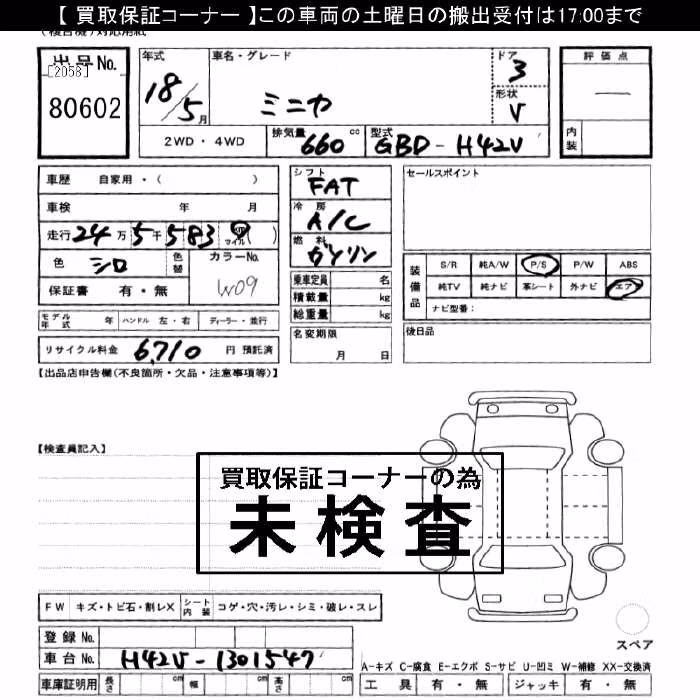 【 買取保証コーナー 】この車両の土曜日の搬出受付は17:00まで
(複合機) 対応用紙
出品No.
[2058]
80602
年式
18/5
月
車名・グレード
ミニカ
ドア
3
形状
V
評価点
—
内装
2WD・4WD
排気量
660
cc
型式
GBD-H42V
車歴 自家用・( )
車検 年 月
走行 24万5千583 km マイル ( )
色 シロ
色替
カラーNo.
W09
保証書 有・無
シフト
FAT
冷房
A/C
燃料
ガソリン
乗車定員 名
積載量 kg
総重量 kg
セールスポイント
装備品
S/R 純A/W P/S P/W ABS
純TV 純ナビ 革シート 外ナビ エア
ナビ型番：
モデル年式 年 ハンドル 左・右 ディーラー・並行
名変期限
月 日
後日品
リサイクル料金 6,710 円 預託済
【出品店申告欄(不良箇所・欠品・注意事項等)】
【検査員記入】
買取保証コーナーの為
未検査
FW キズ・トビ石・割レX シート内装 コゲ・穴・汚レ・シミ・破レ・スレ
登録No.
車台No. H42V-1301547
車庫証明用 長さ cm 幅 cm 高さ cm
スペア
A-キズ C-腐食 E-エクボ S-サビ U-凹ミ W-補修 XX-交換済
工具 有・無 ジャッキ 有・無